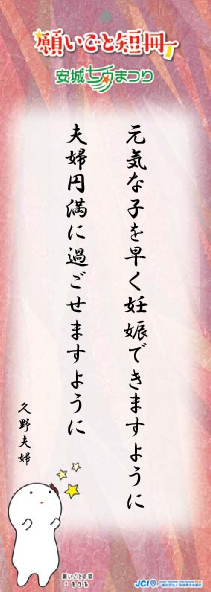 願いごと短冊
安城七夕まつり
元気な子を早く妊娠できますように
夫婦円満に過ごせますように
久野夫婦
願いごとの国
JCI